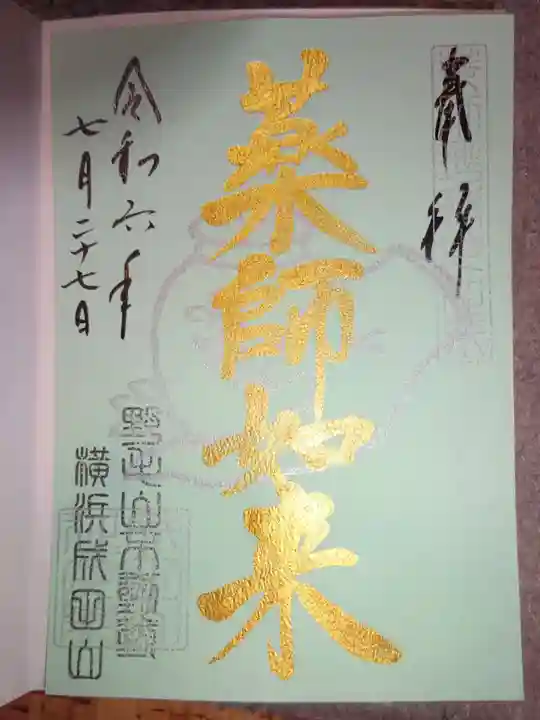 奉拝
薬師如来
令和六年
七月二十七日
野毛山不動尊
横浜成田山